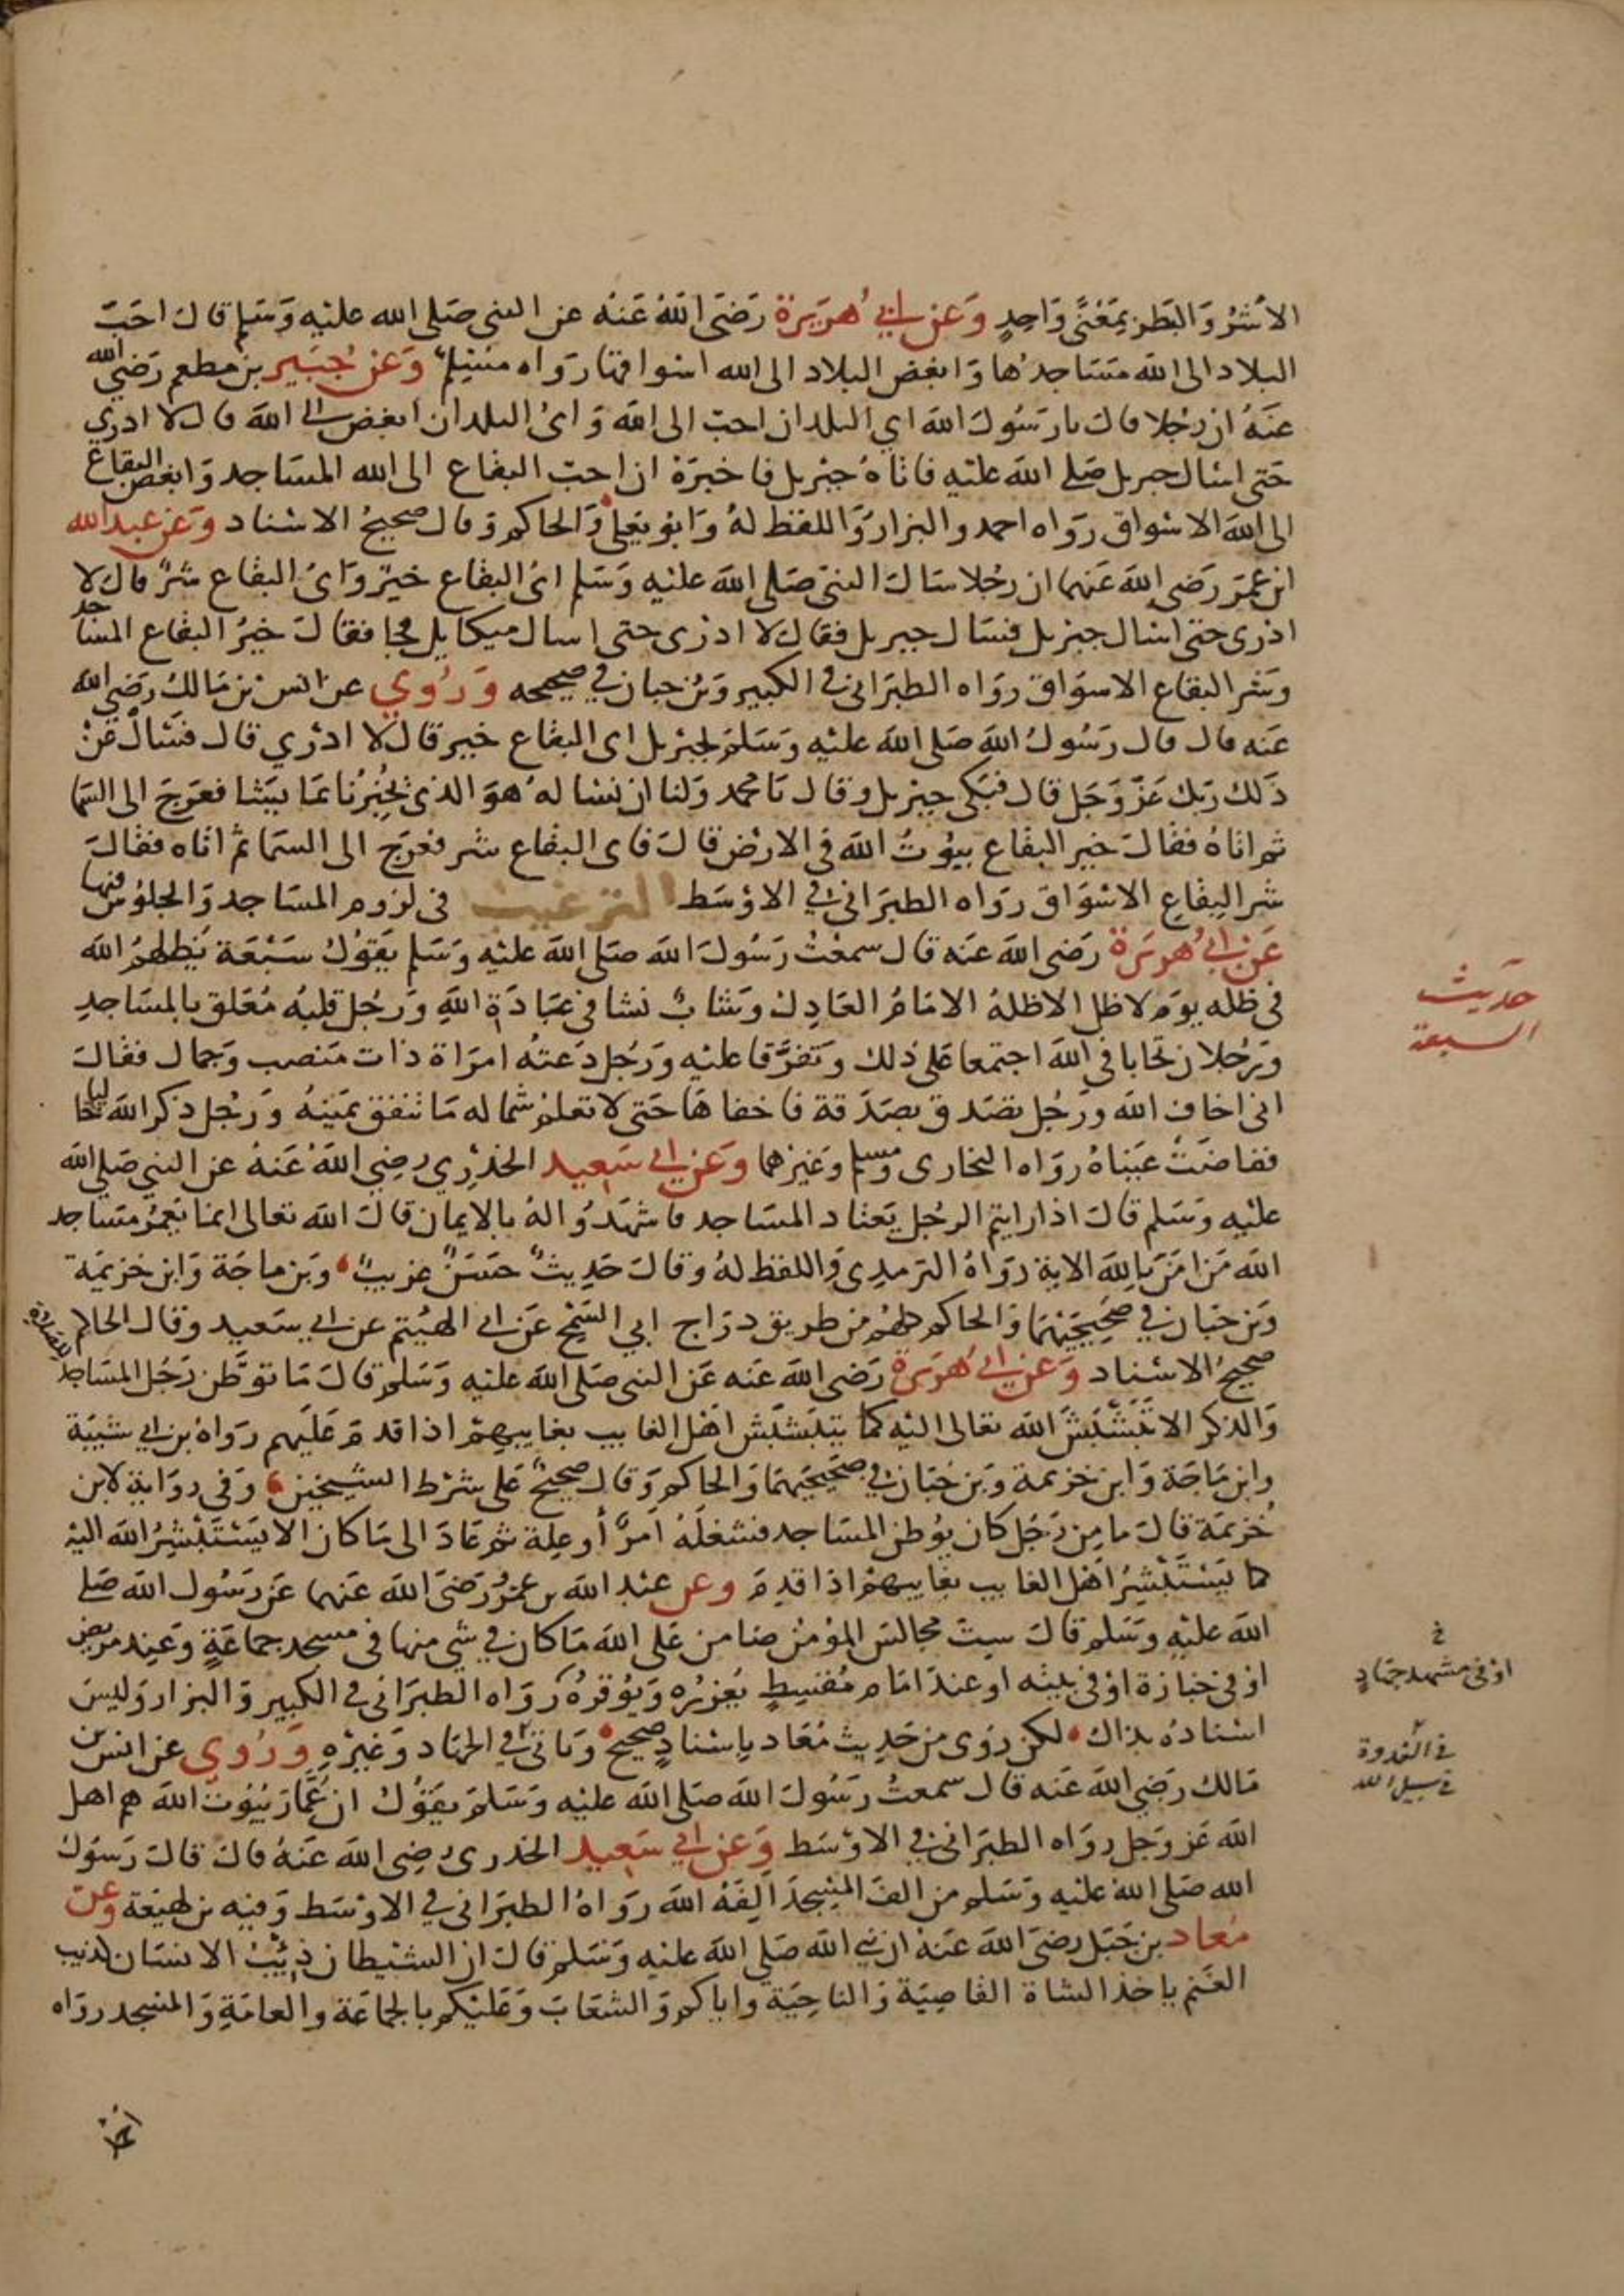 الأشر والبطر بمعنًى واحدٍ وعن ابي هريرة رضى الله عنه عن النبي صلى الله عليه وسلم قال احبّ
البلاد الى الله مساجدها وابغض البلاد الى الله اسواقها رواه مسلم وعن جبير بن مطعم رضي الله
عنه ان رجلا قال يا رسول الله اي البلدان احبّ الى الله واى البلدان ابغض الى الله قال لا ادري
حتى اسال جبريل صلى الله عليه فاتاه جبريل فاخبره ان احبّ البقاع الى الله المساجد وابغض البقاع
الى الله الاسواق رواه احمد والبزار واللفظ له وابو يعلى والحاكم وقال صحيح الاسناد وعن عبد الله
ابن عمر رضى الله عنهما ان رجلا سال النبي صلى الله عليه وسلم اىّ البقاع خير واىّ البقاع شرّ قال لا
ادرى حتى اسال جبريل فسال جبريل فقال لا ادرى حتى اسال ميكايل فجا فقال خير البقاع المساجد
وشر البقاع الاسواق رواه الطبرانى فى الكبير وبن حبان في صحيحه وروي عن انس بن مالك رضي الله
عنه قال قال رسول الله صلى الله عليه وسلم لجبريل اى البقاع خير قال لا ادري قال فسال عن
ذلك ربك عز وجل قال فبكى جبريل وقال يا محمد ولنا ان نساله هو الذى يخبرنا بما يشا فعرج الى السما
ثم اتاه فقال خير البقاع بيوت الله فى الارض قال فاى البقاع شر فعرج الى السما ثم اتاه فقال
شر البقاع الاسواق رواه الطبرانى في الاوسط الترغيب فى لزوم المساجد والجلوس فيها
عن ابي هريرة رضى الله عنه قال سمعت رسول الله صلى الله عليه وسلم يقول سبعة يظلهم الله
فى ظله يوم لا ظل الا ظله الامام العادل وشابّ نشا فى عبادة الله ورجل قلبه معلق بالمساجد
ورجلان تحابا فى الله اجتمعا على ذلك وتفرقا عليه ورجل دعته امراة ذات منصب وجمال فقال
انى اخاف الله ورجل تصدق بصدقة فاخفاها حتى لا تعلم شماله ما تنفق يمينه ورجل ذكر الله خاليا
ففاضت عيناه رواه البخارى ومسلم وغيرهما وعن ابي سعيد الخدري رضي الله عنه عن النبي صلى الله
عليه وسلم قال اذا رايتم الرجل يعتاد المساجد فاشهدوا له بالايمان قال الله تعالى انما يعمر مساجد
الله من امن بالله الاية رواه الترمدى واللفظ له وقال حديث حسن غريب وبن ماجة وابن خزيمة
وبن حبان في صحيحيهما والحاكم كلهم من طريق دراج ابي السمح عن ابي الهيثم عن ابي سعيد وقال الحاكم
صحيح الاسناد وعن ابي هريرة رضى الله عنه عن النبي صلى الله عليه وسلم قال ما توطن رجل المساجد للصلاة
والذكر الا تبشبش الله تعالى اليه كما يتبشبش اهل الغايب بغايبهم اذا قدم عليهم رواه بن ابي شيبة
وابن ماجة وابن خزيمة وبن حبان في صحيحيهما والحاكم وقال صحيح على شرط الشيخين وفى رواية لابن
خزيمة قال ما من رجل كان يوطن المساجد فشغله امر أو علة ثم عاد الى ما كان الا يستبشر الله اليه
كما يستبشر اهل الغايب بغايبهم اذا قدم وعن عبد الله بن عمرو رضى الله عنهما عن رسول الله صلى
الله عليه وسلم قال ست مجالس المؤمن ضامن على الله ما كان في شي منها فى مسجد جماعة وعند مريض
او فى جنازة او فى بيته او عند امام مقسط يعزره ويوقره رواه الطبرانى في الكبير والبزار وليس
اسناده بذاك لكن روى من حديث معاد باسنادٍ صحيح وياتى في الجهاد وغيره وروي عن انس بن
مالك رضي الله عنه قال سمعت رسول الله صلى الله عليه وسلم يقول ان عمار بيوت الله هم اهل
الله عز وجل رواه الطبرانى في الاوسط وعن ابي سعيد الخدرى رضى الله عنه قال قال رسول
الله صلى الله عليه وسلم من الف المسجد الفه الله رواه الطبرانى في الاوسط وفيه بن لهيعة وعن
معاد بن جبل رضى الله عنه ان نبي الله صلى الله عليه وسلم قال ان الشيطان ذيب الانسان كذيب
الغنم ياخذ الشاة القاصية والناحية واياكم والشعاب وعليكم بالجماعة والعامة والمسجد رواه
حديث
السبعة
خ
او فى مشهد جهادٍ
في سبيل الله